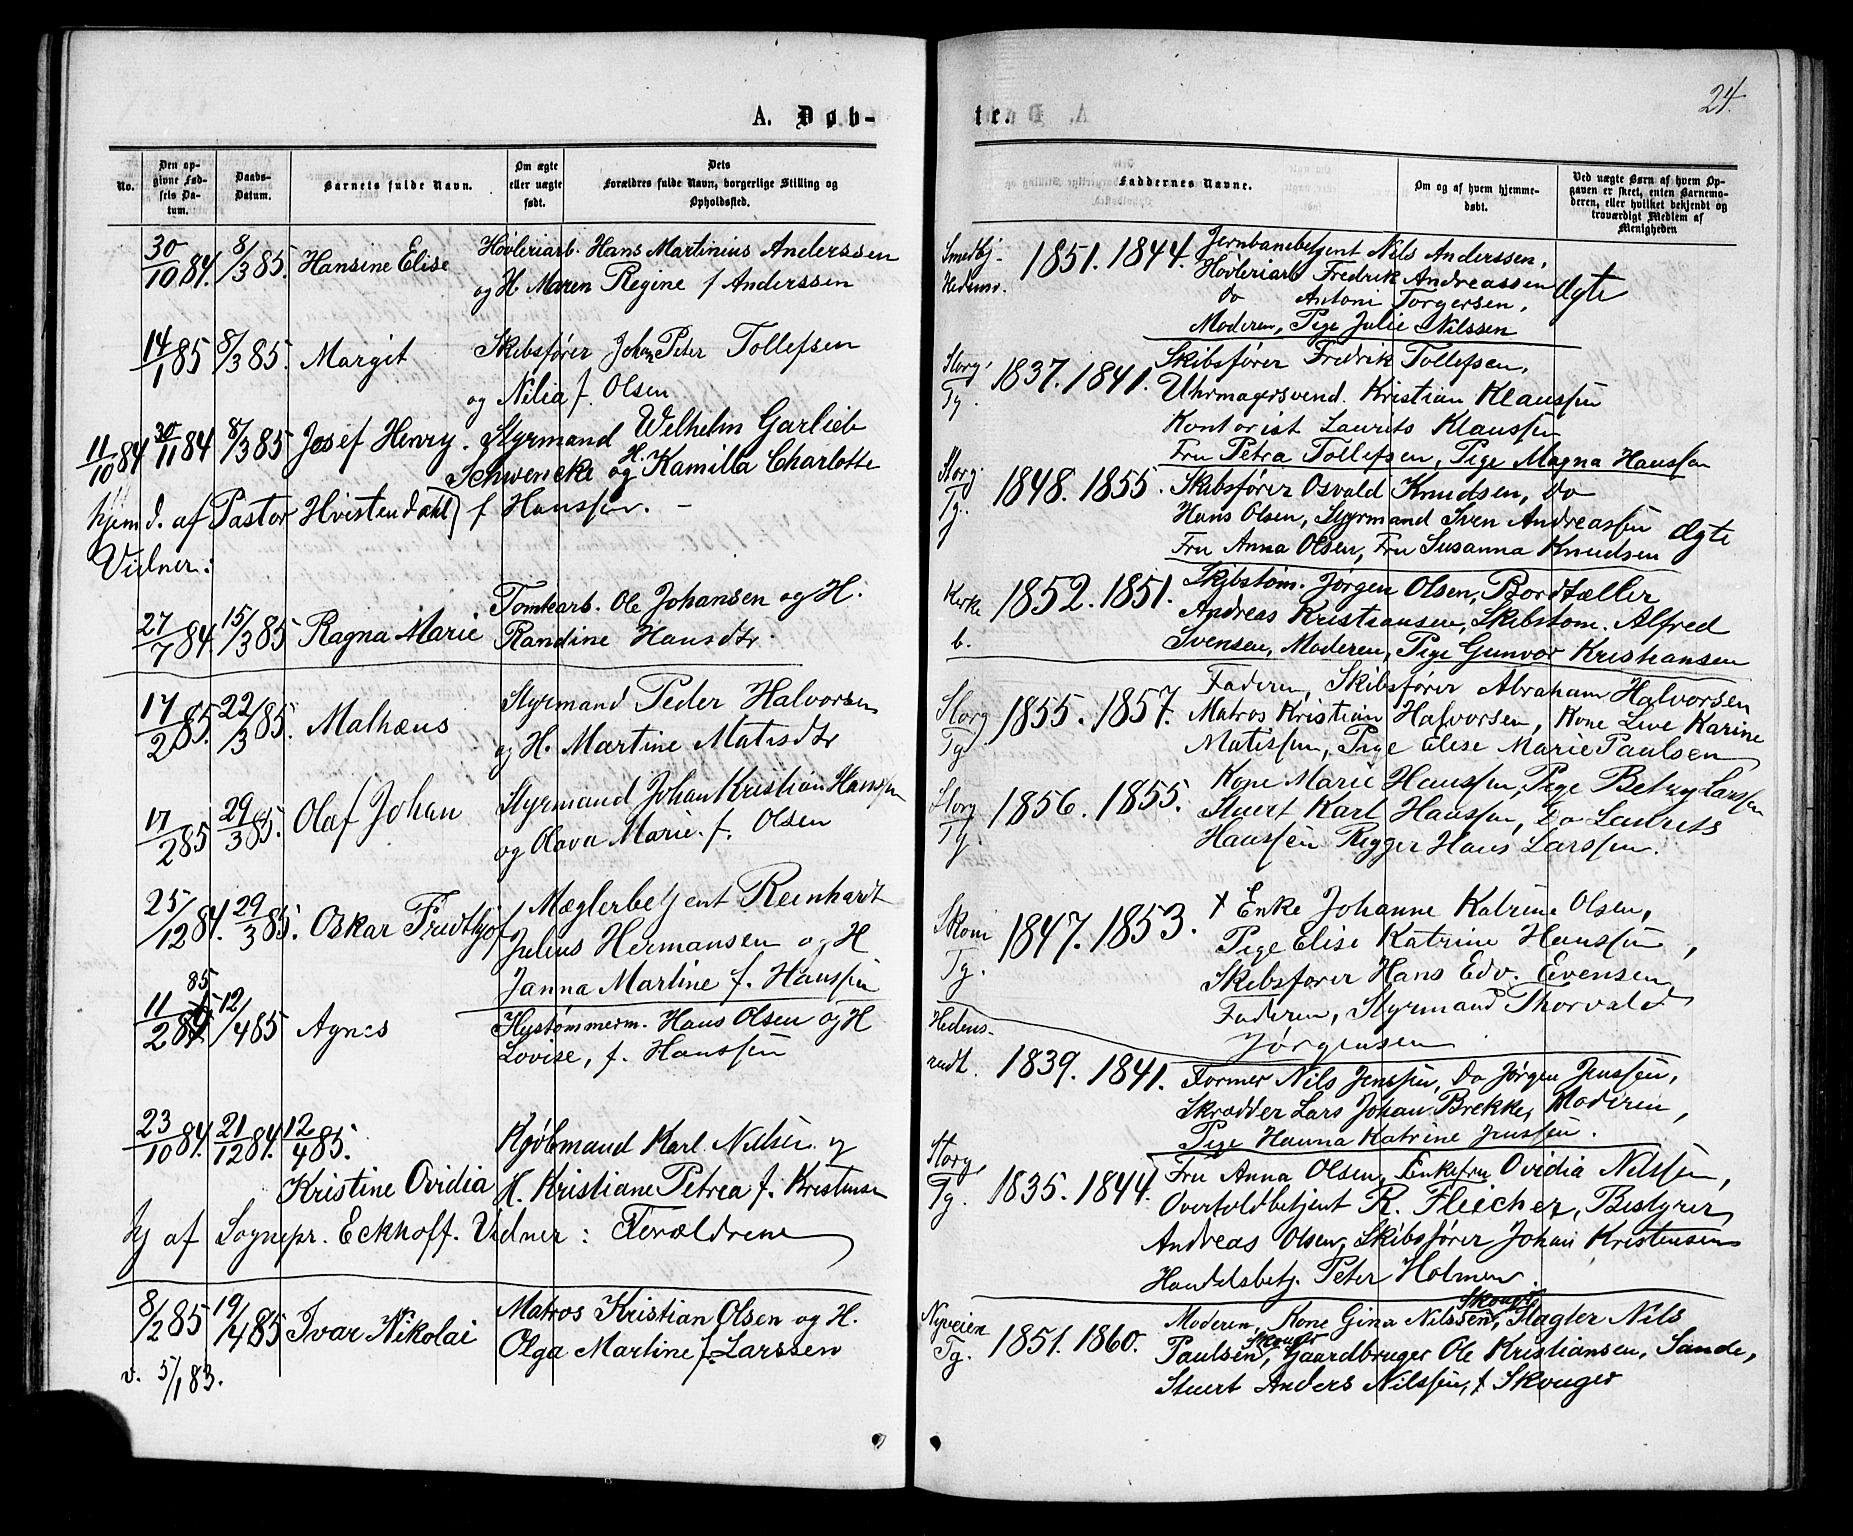 A. Døb-
No.
Den op-
givne Fød-
sels Da-
tum.
Daabs-
Datum.
Barnets fulde Navn.
Om ægte
eller uægte
født.
Dets
Forældres fulde Navn, borgerlige Stilling og
Opholdssted.
30/10 84. 8/3 85. Hansine Elise Høvleriarb. Hans Martinius Anderssen
og H. Maren Regine f Anderssen
14/1 85 8/3 85. Margit Skibsfører Johan Peter Tollefsen
og Nilia f. Olsen
11/10 84 30/11 84 8/3 85 Josef Henry. Styrmand Wilhelm Garlieb
Schwencke og H. Kamilla Charlotte
hjemd. af Pastor Hvistendahl) f Hanssen. –
Vidner:
27/7 84. 15/3 85 Ragna Marie Tomtearb. Ole Johansen og H.
Randine Hansdtr.
17/2 85. 22/3 85. Mathæus Styrmand Peder Halvorsen
og H. Martine Matisdtr
17/2 85 29/3 85. Olaf Johan Styrmand Johan Kristian Hanssen
og Olava Marie. f. Olsen
25/12 84. 29/3 85. Oskar Fridthjof Mæglerbetjent Reinhardt
Julius Hermansen og H
Janna Martine f. Hanssen
85
11/2 84 12/4 85 Agnes Hustømmerm. Hans Olsen og H
Lovise, f. Hanssen
23/10 84. 21/12 84. 12/4 85. Kjøbmand Karl Nilsen og
Kristine Ovidia H. Kristiane Petrea f. Kristensen
Hj af Sognepr. Eckhoff. Vidner: Forældrene
8/2 85 19/4 85 Ivar Nikolai Matros Kristian Olsen og H.
Olga Martine f. Larssen
v. 5/1 83.
te.
24.
Faddernes Navne.
Om og af hvem hjemme-
døbt.
Ved uægte Børn af hvem Op-
gaven er skeet, enten Barnemo-
deren, eller hvilket bekjendt og
troværdigt Medlem af
Menigheden
Smedbj.
Hedens. 1851. 1844. Jernbanebetjent Nils Anderssen,
Høvleriarb Fredrik Andreassen
Do Antoni Torgersen, Ægte
Moderen, Pige Julie Nilssen
Storg
Tg. 1837. 1841. Skibsfører Fredrik Tollefsen,
Uhrmagersvend. Kristian Klaussen
Kontorist Laurits Klaussen
Fru Petra Tollefsen, Pige Magna Hanssen
Storg.
Tg. 1848. 1855. Skibsfører Osvald Knudsen, Do
Hans Olsen, Styrmand Sven Andreassen Ægte
Fru Anna Olsen, Fru Susanna Knudsen
Kirke
b. 1852. 1851. Skibstøm. Jørgen Olsen, Bordtæller
Andreas Kristiansen, Skibstøm. Alfred
Svensen, Moderen, Pige Gunvor Kristiansen
Storg
Tg 1855. 1857. Faderen, Skibsfører Abraham Halvorsen
Matros Kristian Halvorsen, Kone Live Karine
Matissen, Pige Elise Marie Paulsen
Storg
Tg. 1856. 1855. Kone Marie Hanssen, Pige Betzy Larssen
Stuert Karl Hanssen, Do Laurits
Hanssen Rigger Hans Larssen.
Skom
Tg. 1847. 1853. + Enke Johanne Katrine Olsen,
Pige Elise Katrine Hanssen,
Skibsfører Hans Edv. Evensen
Faderen, Styrmand Thorvald
Jørgensen
Hedens-
rudt. 1839. 1841. Former Nils Jenssen, Do Jørgen Jenssen,
Skrædder Lars Johan Brekke, Moderen,
Pige Hanna Katrine Jenssen.
Storg.
Tg. 1835. 1844. Fru Anna Olsen, Enkefru Ovidia Nilssen,
Overtoldbetjent R. Fleicher, Bestyrer
Andreas Olsen, Skibsfører Johan Kristensen
Handelsbetj. Peter Holmen.
Nyveien
Tg. 1851. 1860. Moderen, Kone Gina Nilssen, Skouger Slagter Nils
Paulsen, Skouger Gaardbruger Ole Kristiansen, Sande,
Stuert Anders Nilssen, + Skouger